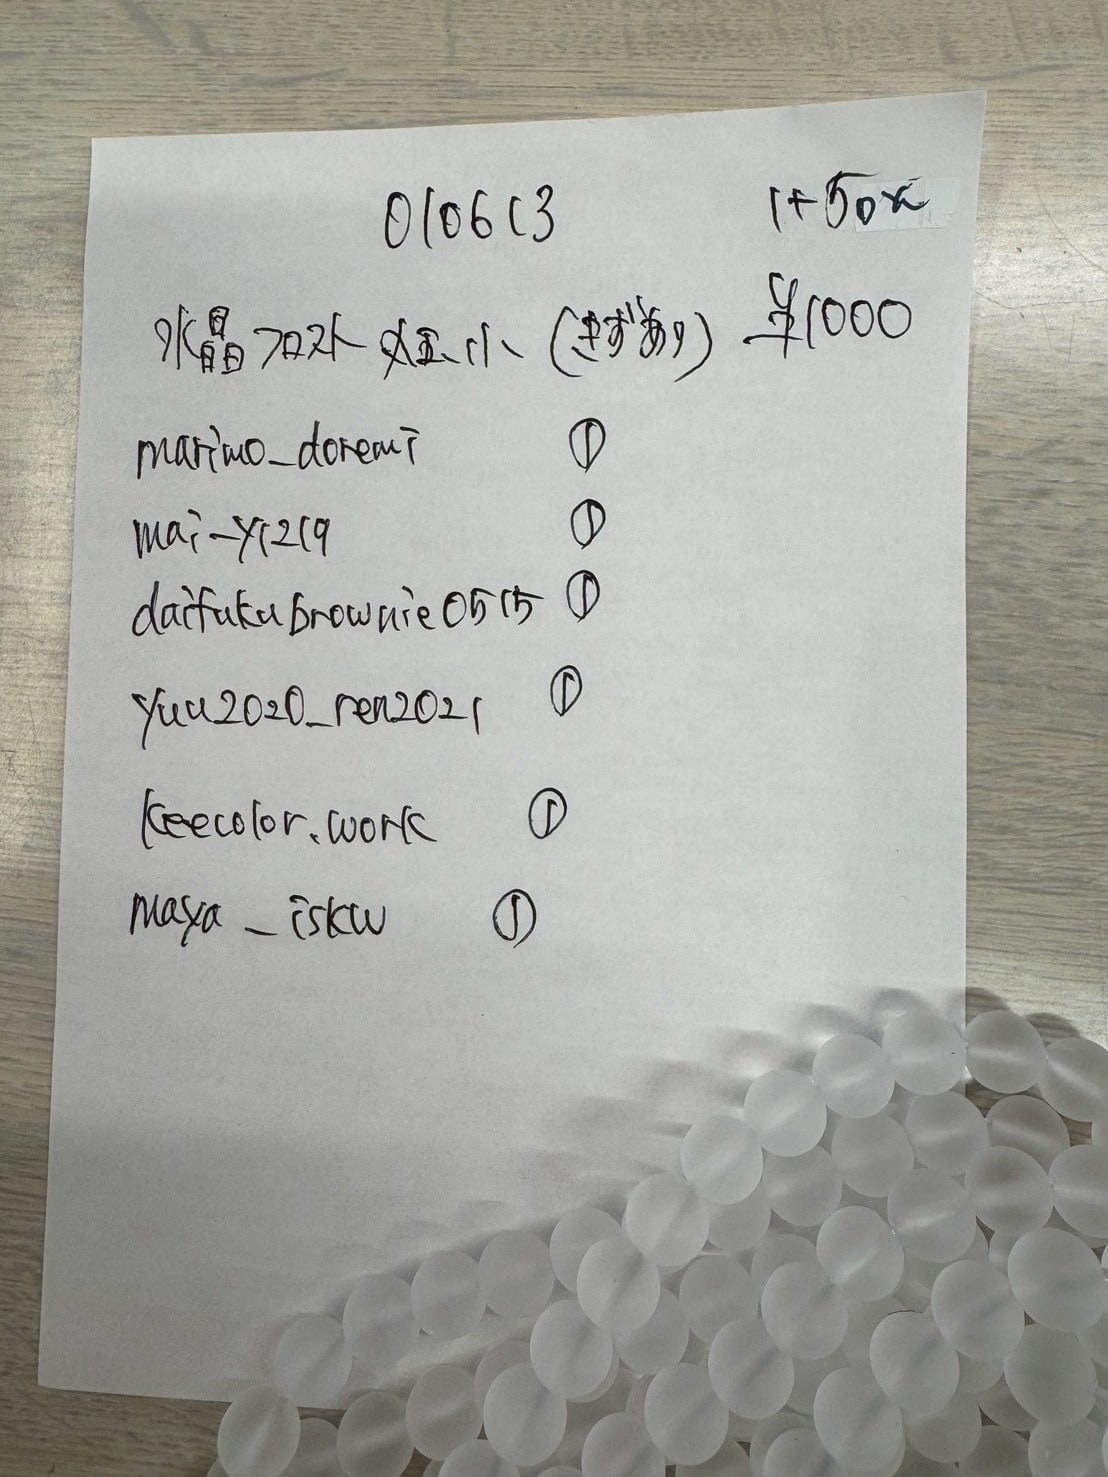 010613
水晶フロスト 大玉、小 (きずあり) ¥1000
marimo_doremi ①
mai-y1219 ①
daifukubrownie0515 ①
yuu2020_ren2021 ①
keecolor.work ①
maya_iskw ①